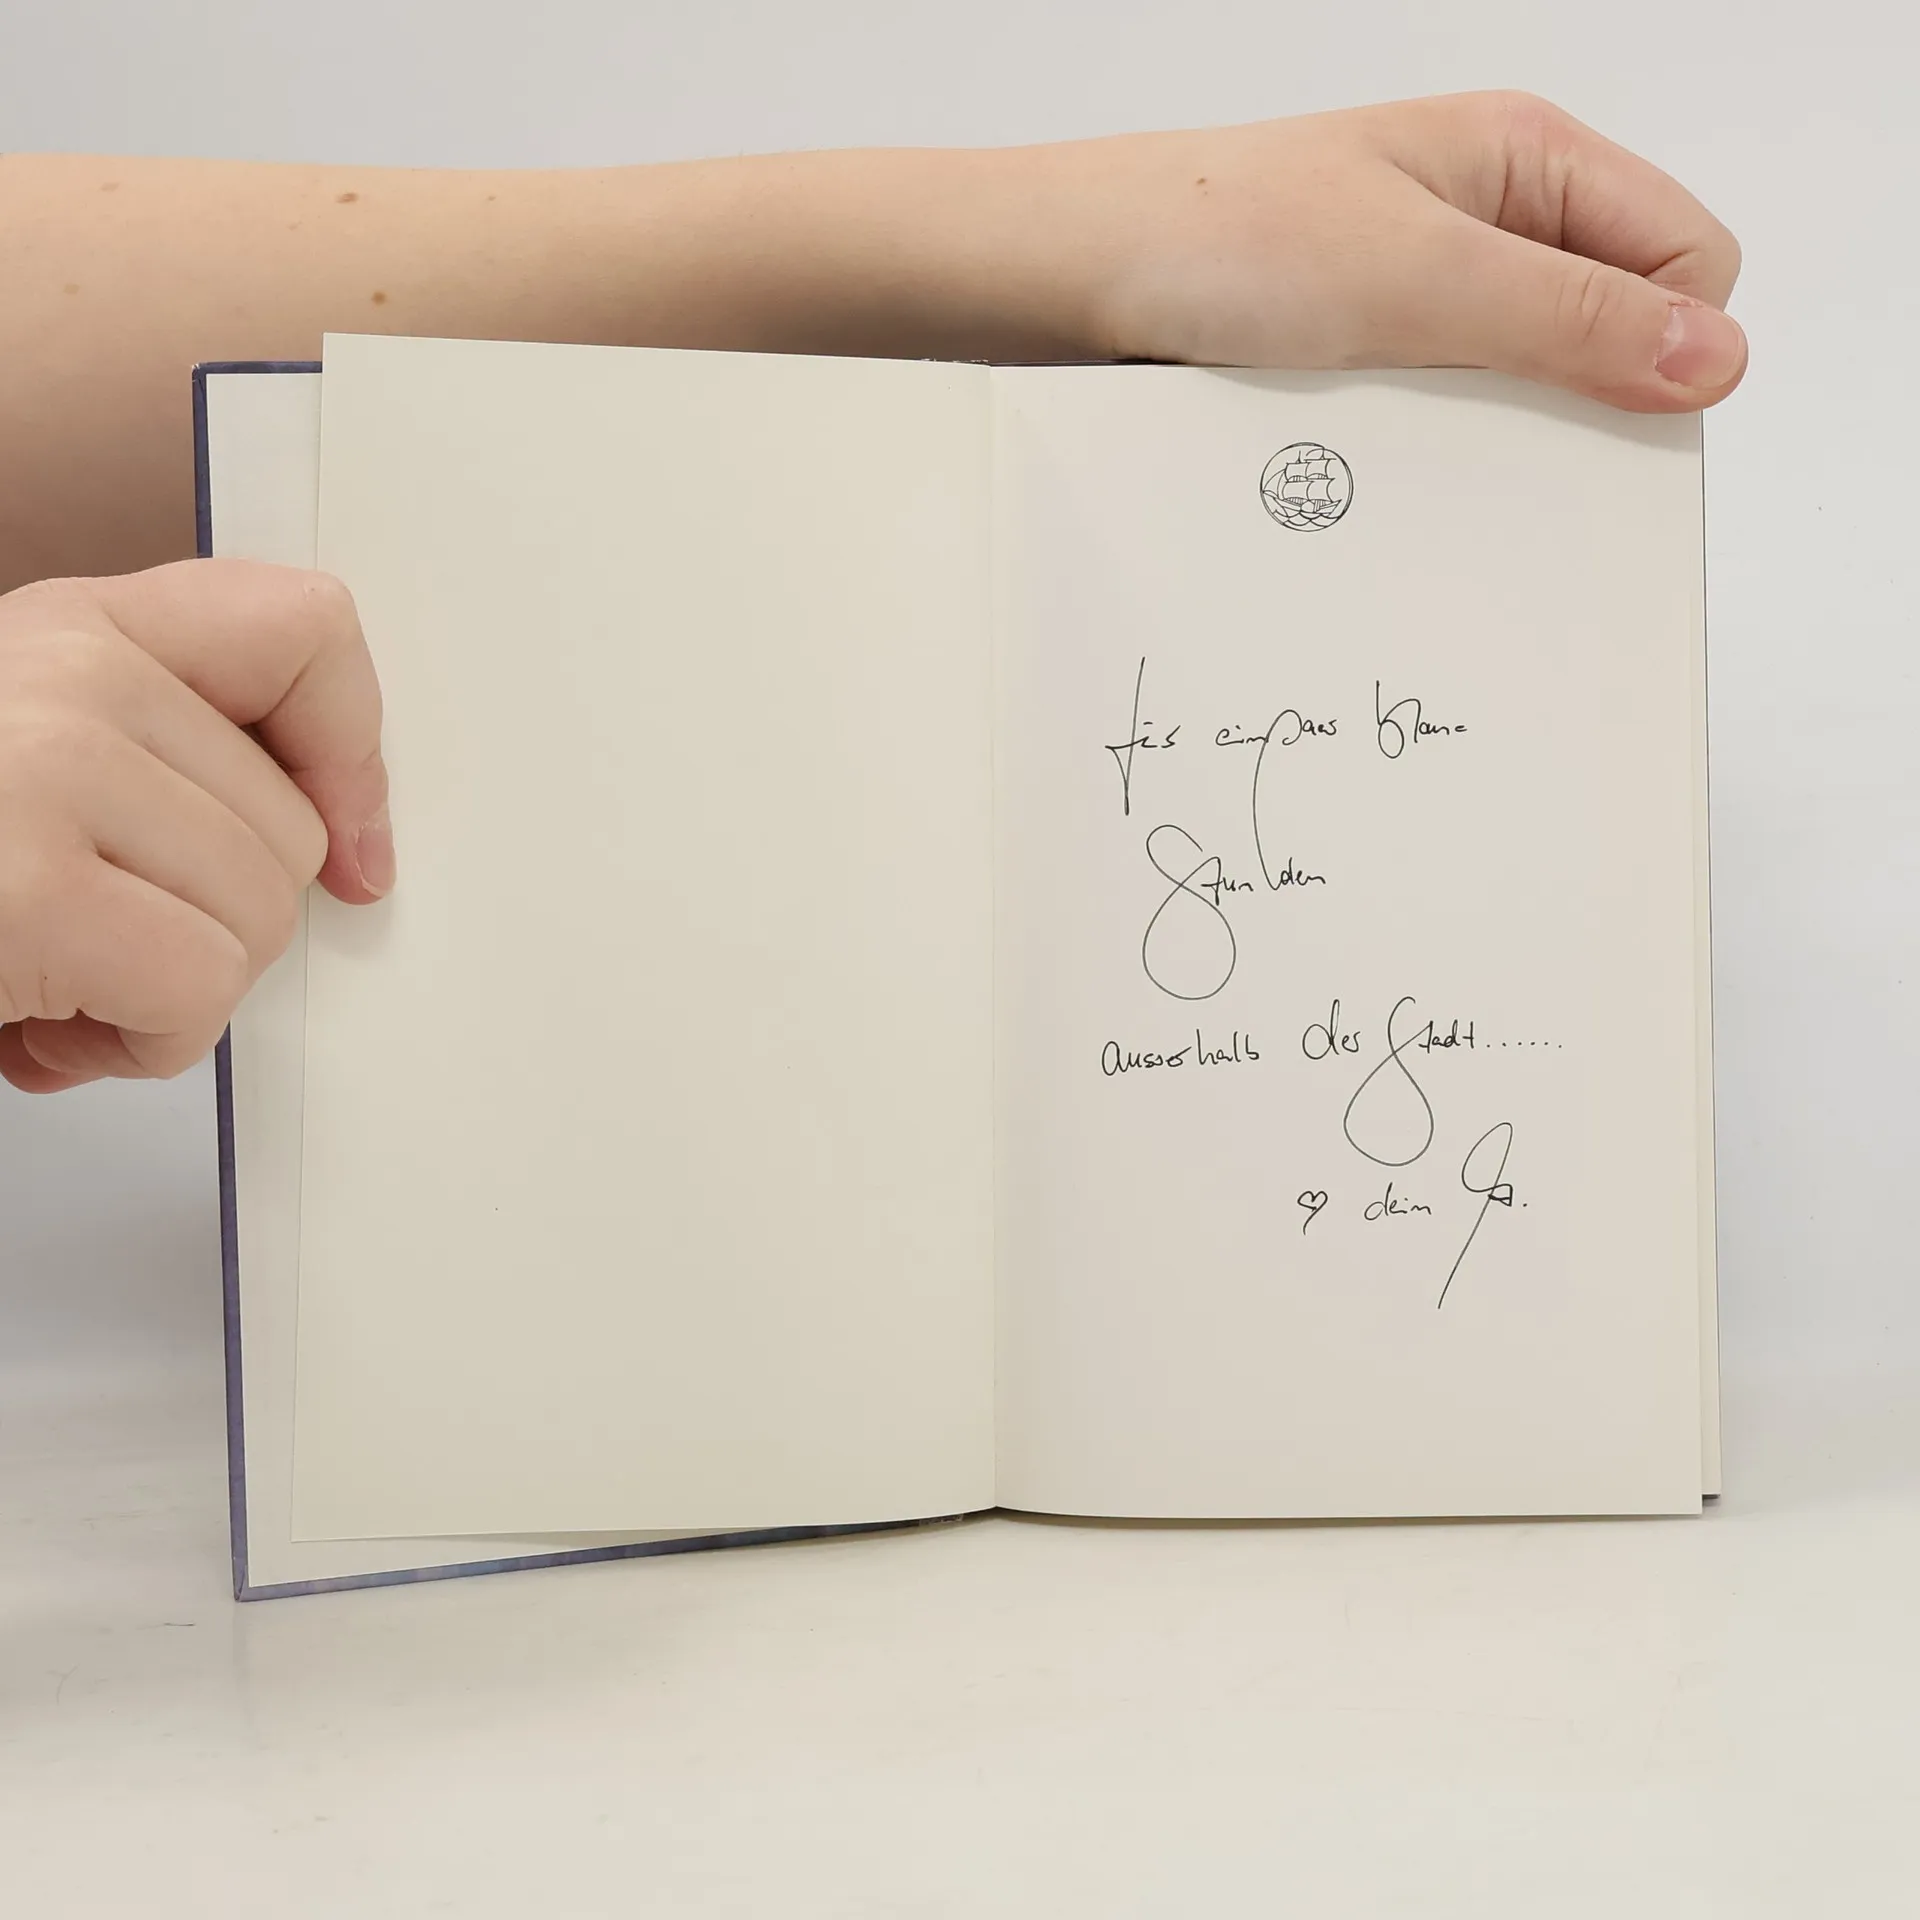 für ein paar blaue
Stunden
ausserhalb der Stadt......
dein